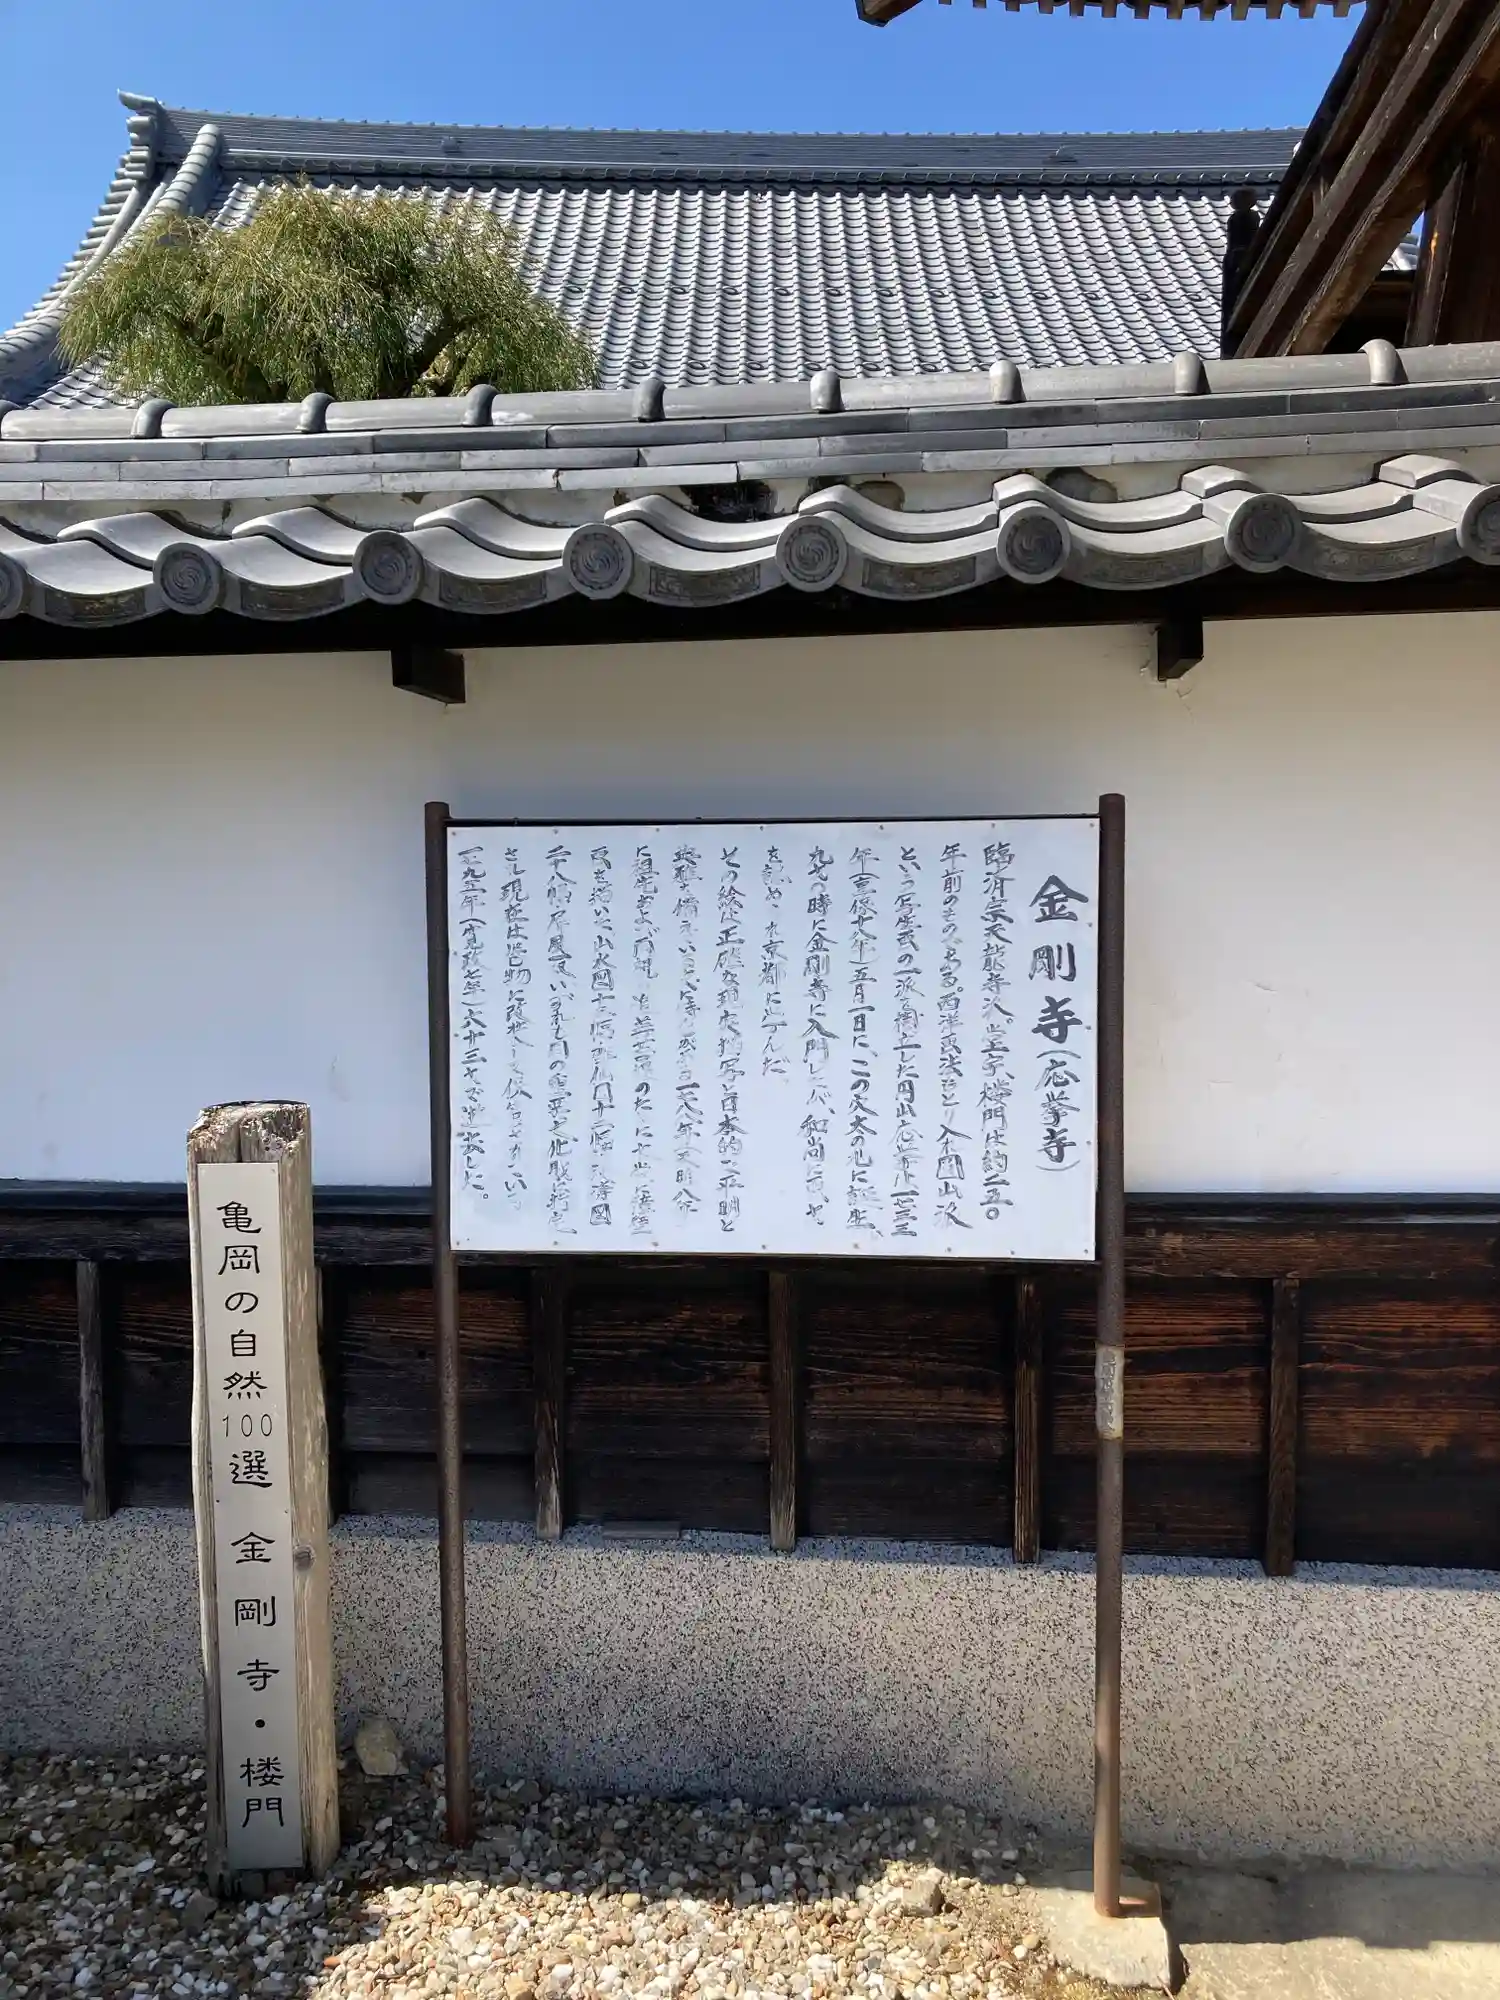 金剛寺(応挙寺)
臨済宗天龍寺派。堂宇、楼門は約二五〇
年前のものである。西洋画法をとり入れ円山派
という写生画の一派を樹立した円山応挙は一七三三
年(享保十八年)五月一日に、この穴太の地に誕生、
九才の時に金剛寺に入門したが、和尚に画才
を認められ京都に学んだ。
その絵は正確な現実描写と日本的な平明と
典雅を備えている 一七八八年(天明八年)
に祖先および両親の追善菩提のために
画を描いた山水図 群仙図十二幅
さし現在は巻物に改装して保存されている
一七九五年(寛政七年)六十三才で逝去した。
亀岡の自然100選 金剛寺・楼門